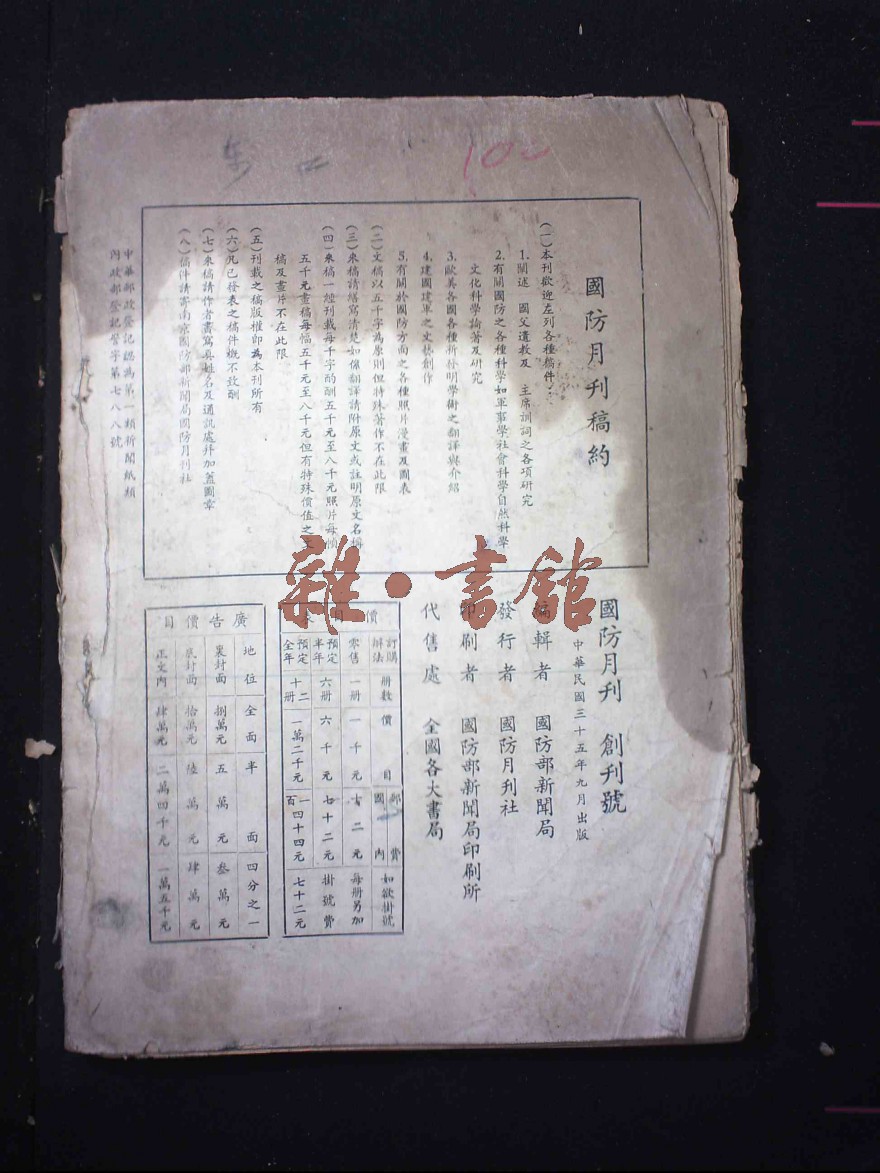 100
國防月刊稿約
(一)本刊歡迎左列各種稿件:
1.闡述 國父遺教及 主席訓詞之各項研究
2.有關國防之各種科學如軍事學社會科學自然科學
文化科學論著及研究
3.歐美各國各種新發明學術之翻譯與介紹
4.建國建軍之文藝創作
5.有關於國防方面之各種照片漫畫及圖表
(二)文稿以五千字為原則但特殊著作不在此限
(三)來稿請繕寫清楚如係翻譯請附原文或註明原文名稱
(四)來稿一經刊載每千字酌酬五千元至八千元照片每幀
五千元畫稿每幅五千元至八千元但有特殊價值之文
稿及畫片不在此限
(五)刊載之稿版權即為本刊所有
(六)凡已發表之稿件概不致酬
(七)來稿請作者書寫真姓名及通訊處幷加蓋圖章
(八)稿件請寄南京國防部新聞局國防月刊社
中華郵政登記認為第一類新聞紙類
內政部登記警字第七八八號
國防月刊 創刊號
中華民國三十五年九月出版
編輯者 國防部新聞局
發行者 國防月刊社
印刷者 國防部新聞局印刷所
代售處 全國各大書局
價目表
訂購辦法 冊數 價目 郵費 國內 如欲掛號
零售 一冊 一千元 十二元 每冊另加
預定半年 六冊 六千元 七十二元 掛號費
預定全年 十二冊 一萬二千元 一百四十四元 七十二元
廣告價目
地位 全面 半面 四分之一
裏封面 捌萬元 五萬元 叁萬元
底封面 拾萬元 陸萬元 肆萬元
正文內 肆萬元 二萬四千元 一萬五千元
雜·書館